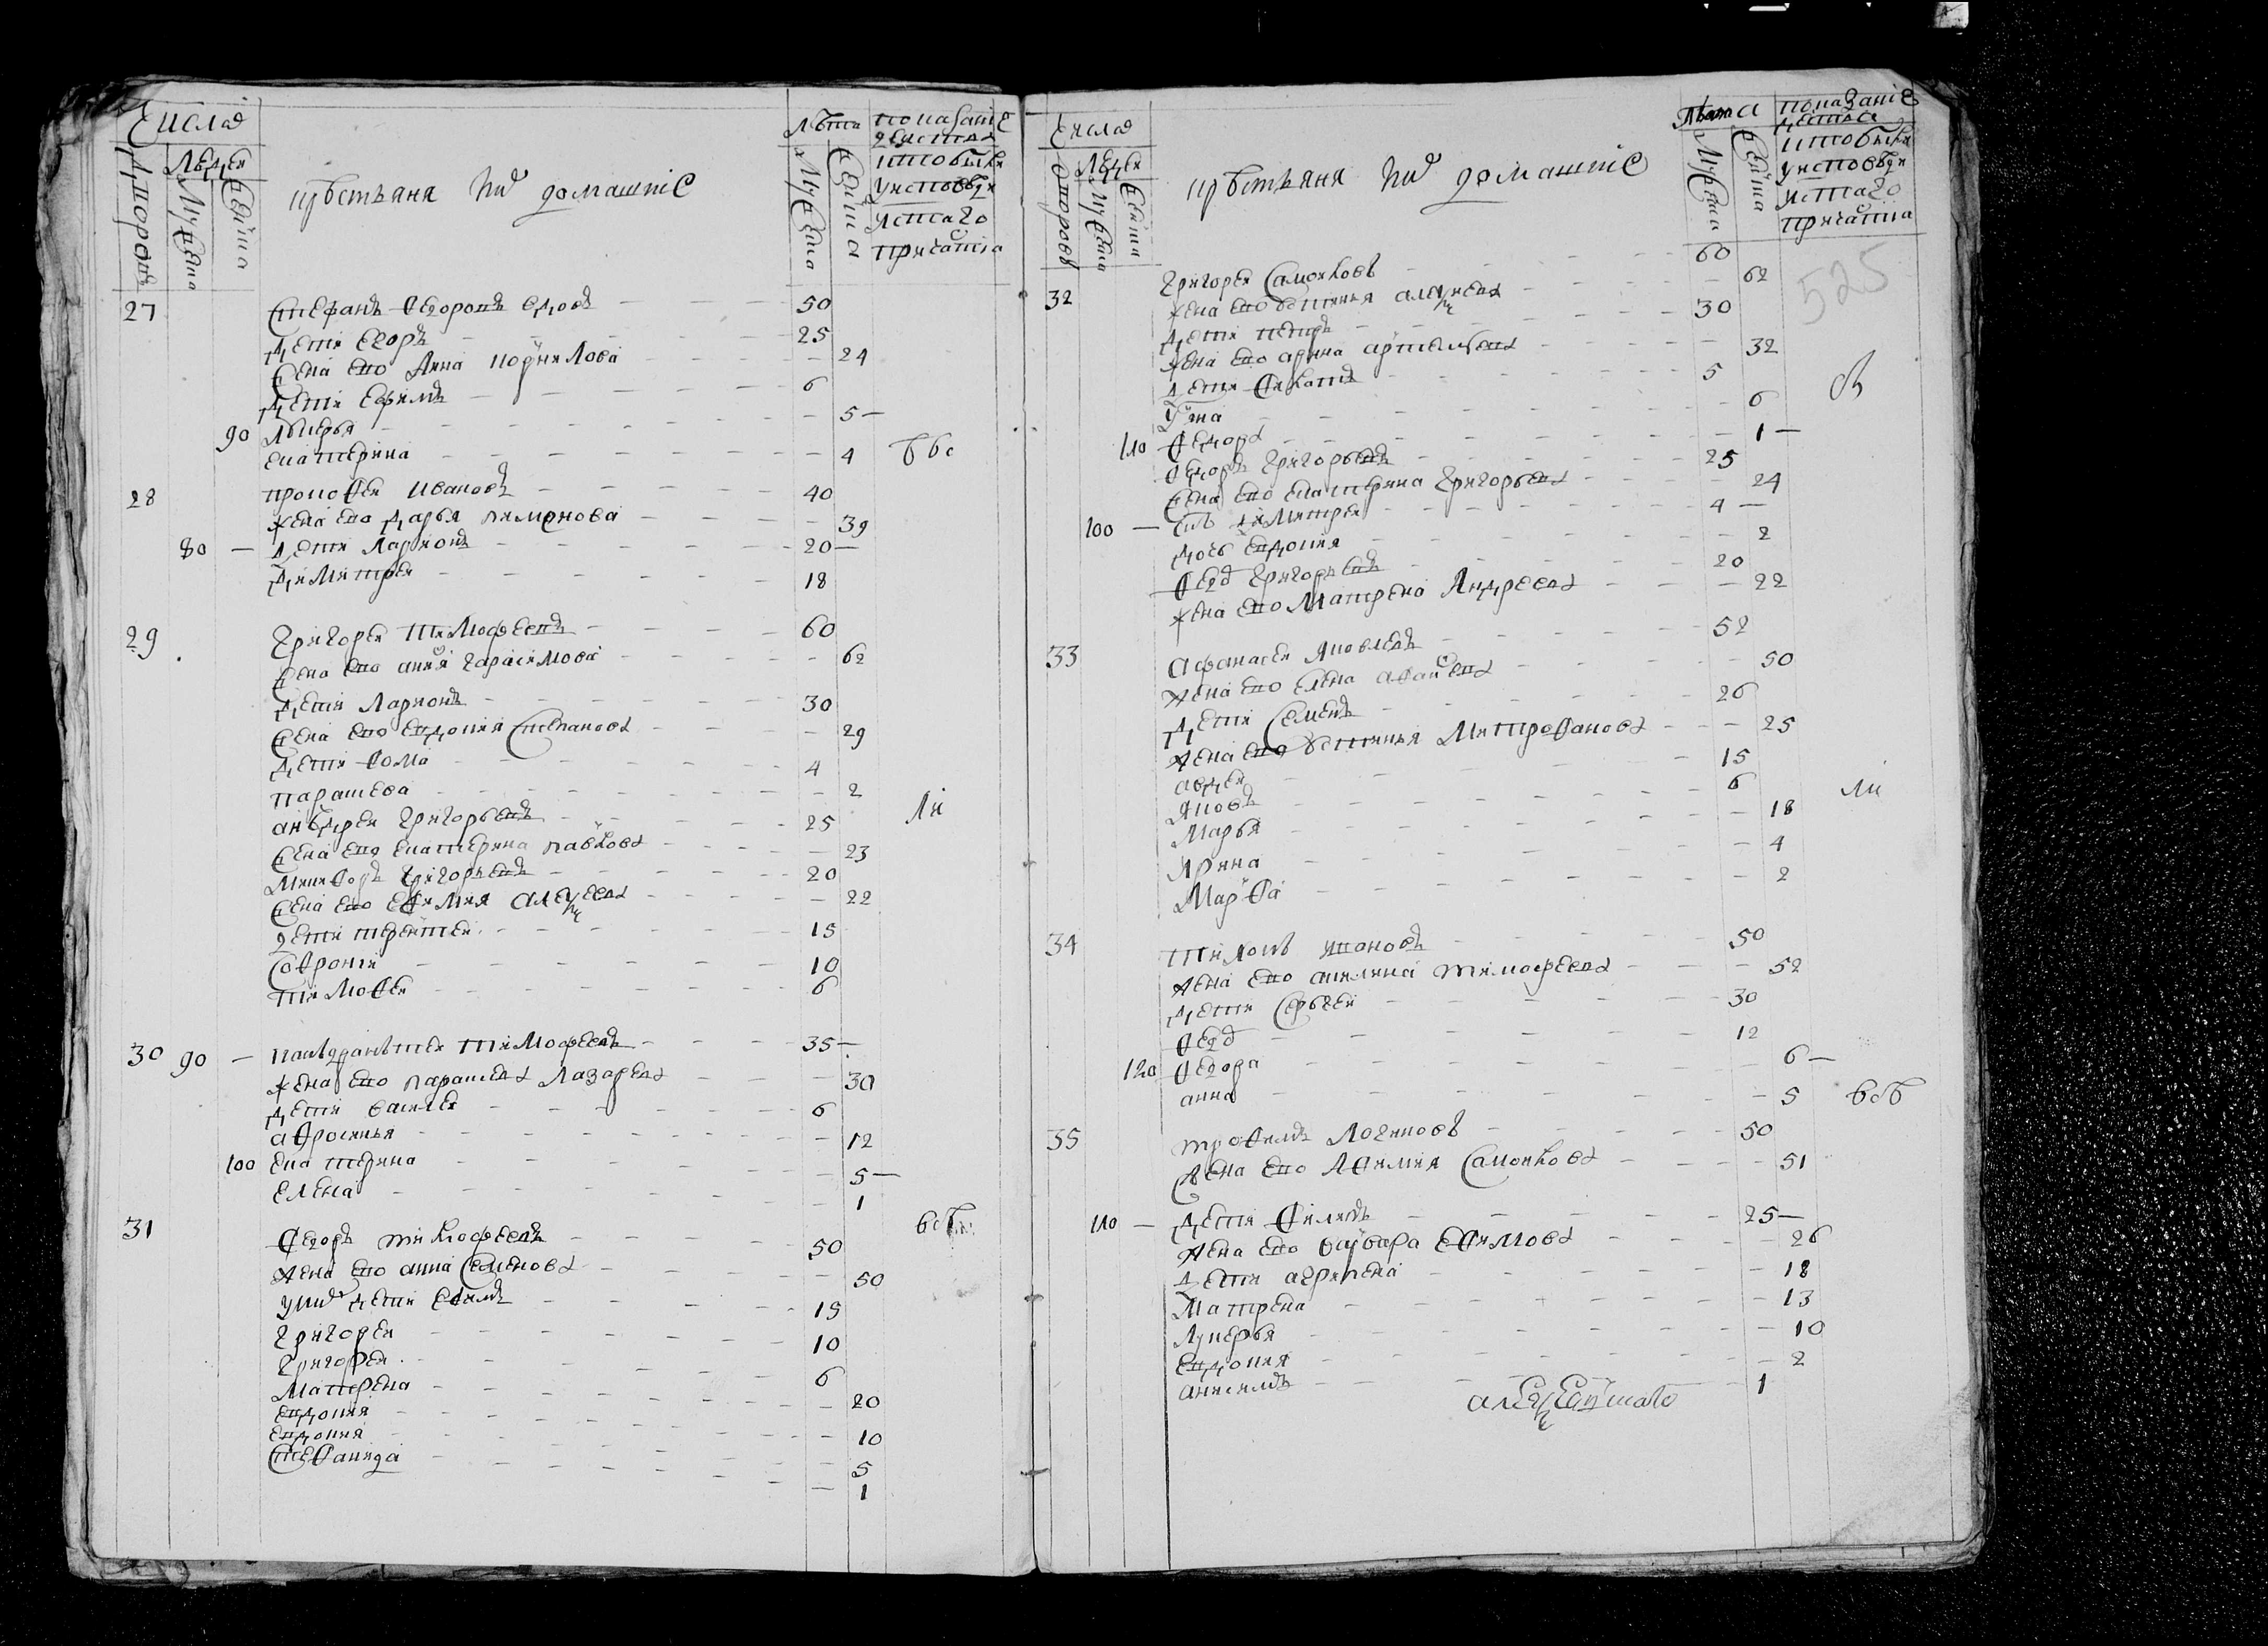 Числа
дворовъ
Людей
Мужеска
Женска
крѣстьяня и ихъ домашніе
Лѣта
Мужеска
Женска
показаніе
действа
кто былъ
у исповѣди
и стаго
причастія
27 Стефанъ Федоровъ вдовъ 50
дети Егоръ 25
жена ево Анна корнилова 24
дети Ефимъ 6
90 Лукерья 5
екатерина 4
28 прокофей ивановъ 40
жена ево дарья пименова 39
80 дети Ларионъ 20
димитрей 18
29 григорей тимофеевъ 60
жена ево анна гарасимова 62
дети Ларионъ 30
жена ево евдокия степанова 29
дети фома 4
парасковa 2
андрей григорьевъ 25
жена ево екатерина павлова 23
никифоръ григорьевъ 20
жена ево ефимия алексеева 22
дети терентей 15
софроний 10
тимофей 6
30 90 тимофеевъ 35
жена ево парасковa Лазарева 30
дети василей 6
афросинья 12
100 екатерина 5
елена 1
31 Федоръ тимофеевъ 50
жена ево анна Семенова 50
у них дети Ефимъ 15
григорей 10
григорей 6
Матрена 20
евдокия 10
евдокия 5
Стефанида 1
Числа
дворовъ
Людей
Мужеска
Женска
крѣстьяня и ихъ домашніе
Лѣта
Мужеска
Женска
показаніе
действа
кто былъ
у исповѣди
и стаго
причастія
525
32 григорей Самойловъ 60
жена ево устинья алексеева 62
дети петръ 30
жена ево арина артемьева 32
дети 5
6
110 Федора 1
Федоръ григорьевъ 25
жена ево екатерина григорьева 24
100 сынъ димитрей 4
дочь евдокия 2
Федоръ григорьевъ 20
жена ево Матрена Андреева 22
33 афанасей яковлевъ 52
жена ево елена 50
дети Семенъ 26
жена ево устинья Митрофанова 25
авдей 15
яковъ 6
Марья 18
Арина 4
Марфа 2
34 50
жена ево акилина тимофеева 52
дети Сергей 30
Федоръ 12
120 Федора 6
анна 5
35 трофимъ Логиновъ 50
жена ево Афимия Самойлова 51
110 дети Филипъ 25
жена ево варвара Ефимова 26
дети агрипена 18
Матрена 13
Лукерья 10
Евдокия 2
анисимъ 1